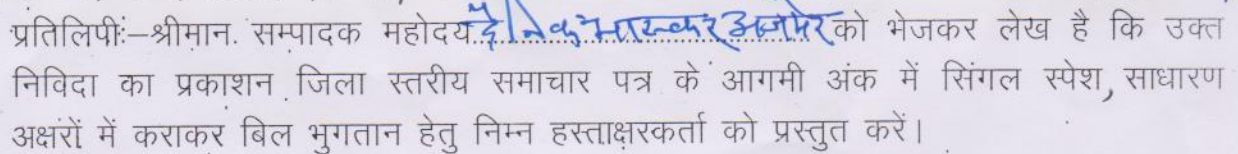 प्रतिलिपीः–श्रीमान. सम्पादक महोदय..दैनिक भास्कर अजमेर को भेजकर लेख है कि उक्त
निविदा का प्रकाशन जिला स्तरीय समाचार पत्र के आगमी अंक में सिंगल स्पेश, साधारण
अक्षरों में कराकर बिल भुगतान हेतु निम्न हस्ताक्षरकर्ता को प्रस्तुत करें।